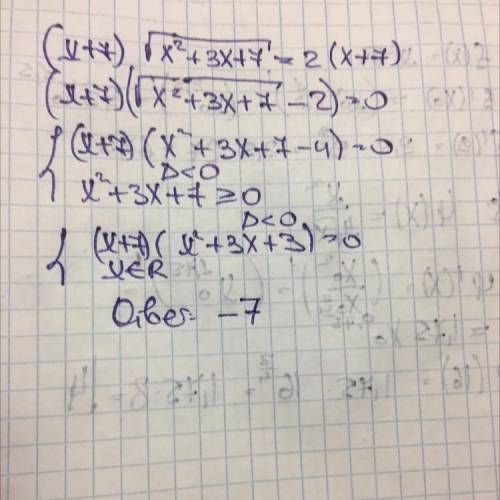 (x+7) √(x²+3x+7) = 2(x+7)
(x+7)(√(x²+3x+7) - 2) = 0
{ (x+7)(x²+3x+7-4) = 0
D<0
x²+3x+7 ≥ 0
D<0
{ (x+7)(x²+3x+3) = 0
x∈R
Ответ: -7